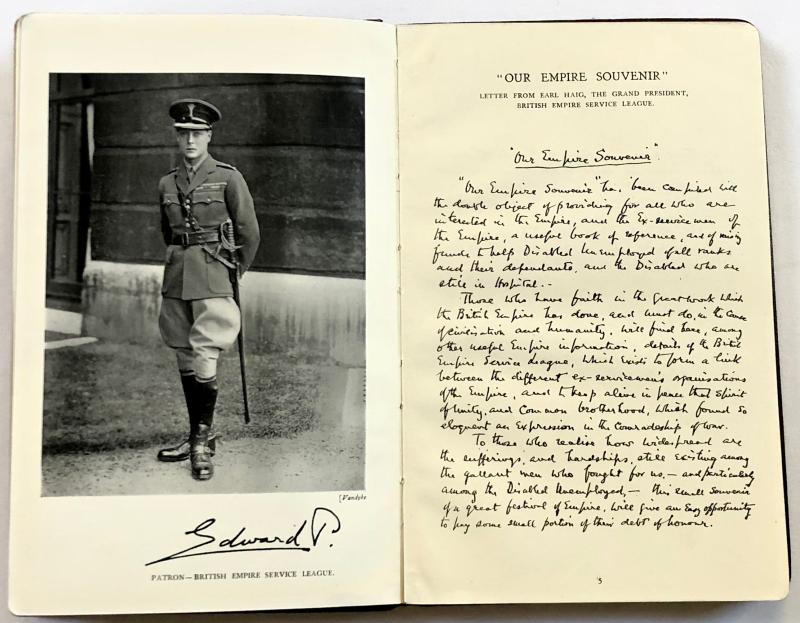 [Vandyke
Edward P.
PATRON—BRITISH EMPIRE SERVICE LEAGUE.
"OUR EMPIRE SOUVENIR"
LETTER FROM EARL HAIG, THE GRAND PRESIDENT,
BRITISH EMPIRE SERVICE LEAGUE.
"Our Empire Souvenir".
"Our Empire Souvenir" has been compiled with
the double object of providing for all who are
interested in the Empire, and the Ex-service men of
the Empire, a useful book of reference, and of raising
funds to help Disabled Unemployed of all ranks
and their dependants, and the Disabled who are
still in Hospital.-
Those who have faith in the great work which
the British Empire has done, and must do, in the cause
of civilisation and humanity, will find here, among
other useful Empire information, details of the British
Empire Service League, which exists to form a link
between the different ex-servicemen's organisations
of the Empire, and to keep alive in peace that spirit
of Unity, and Common brotherhood, which found so
eloquent an Expression in the Comradeship of war.
To those who realise how widespread are
the sufferings, and hardships, still existing among
the gallant men who fought for us,— and particularly
among the Disabled Unemployed,— this small Souvenir
of a great festival of Empire, will give an Easy opportunity
to pay some small portion of their debt of honour.
5